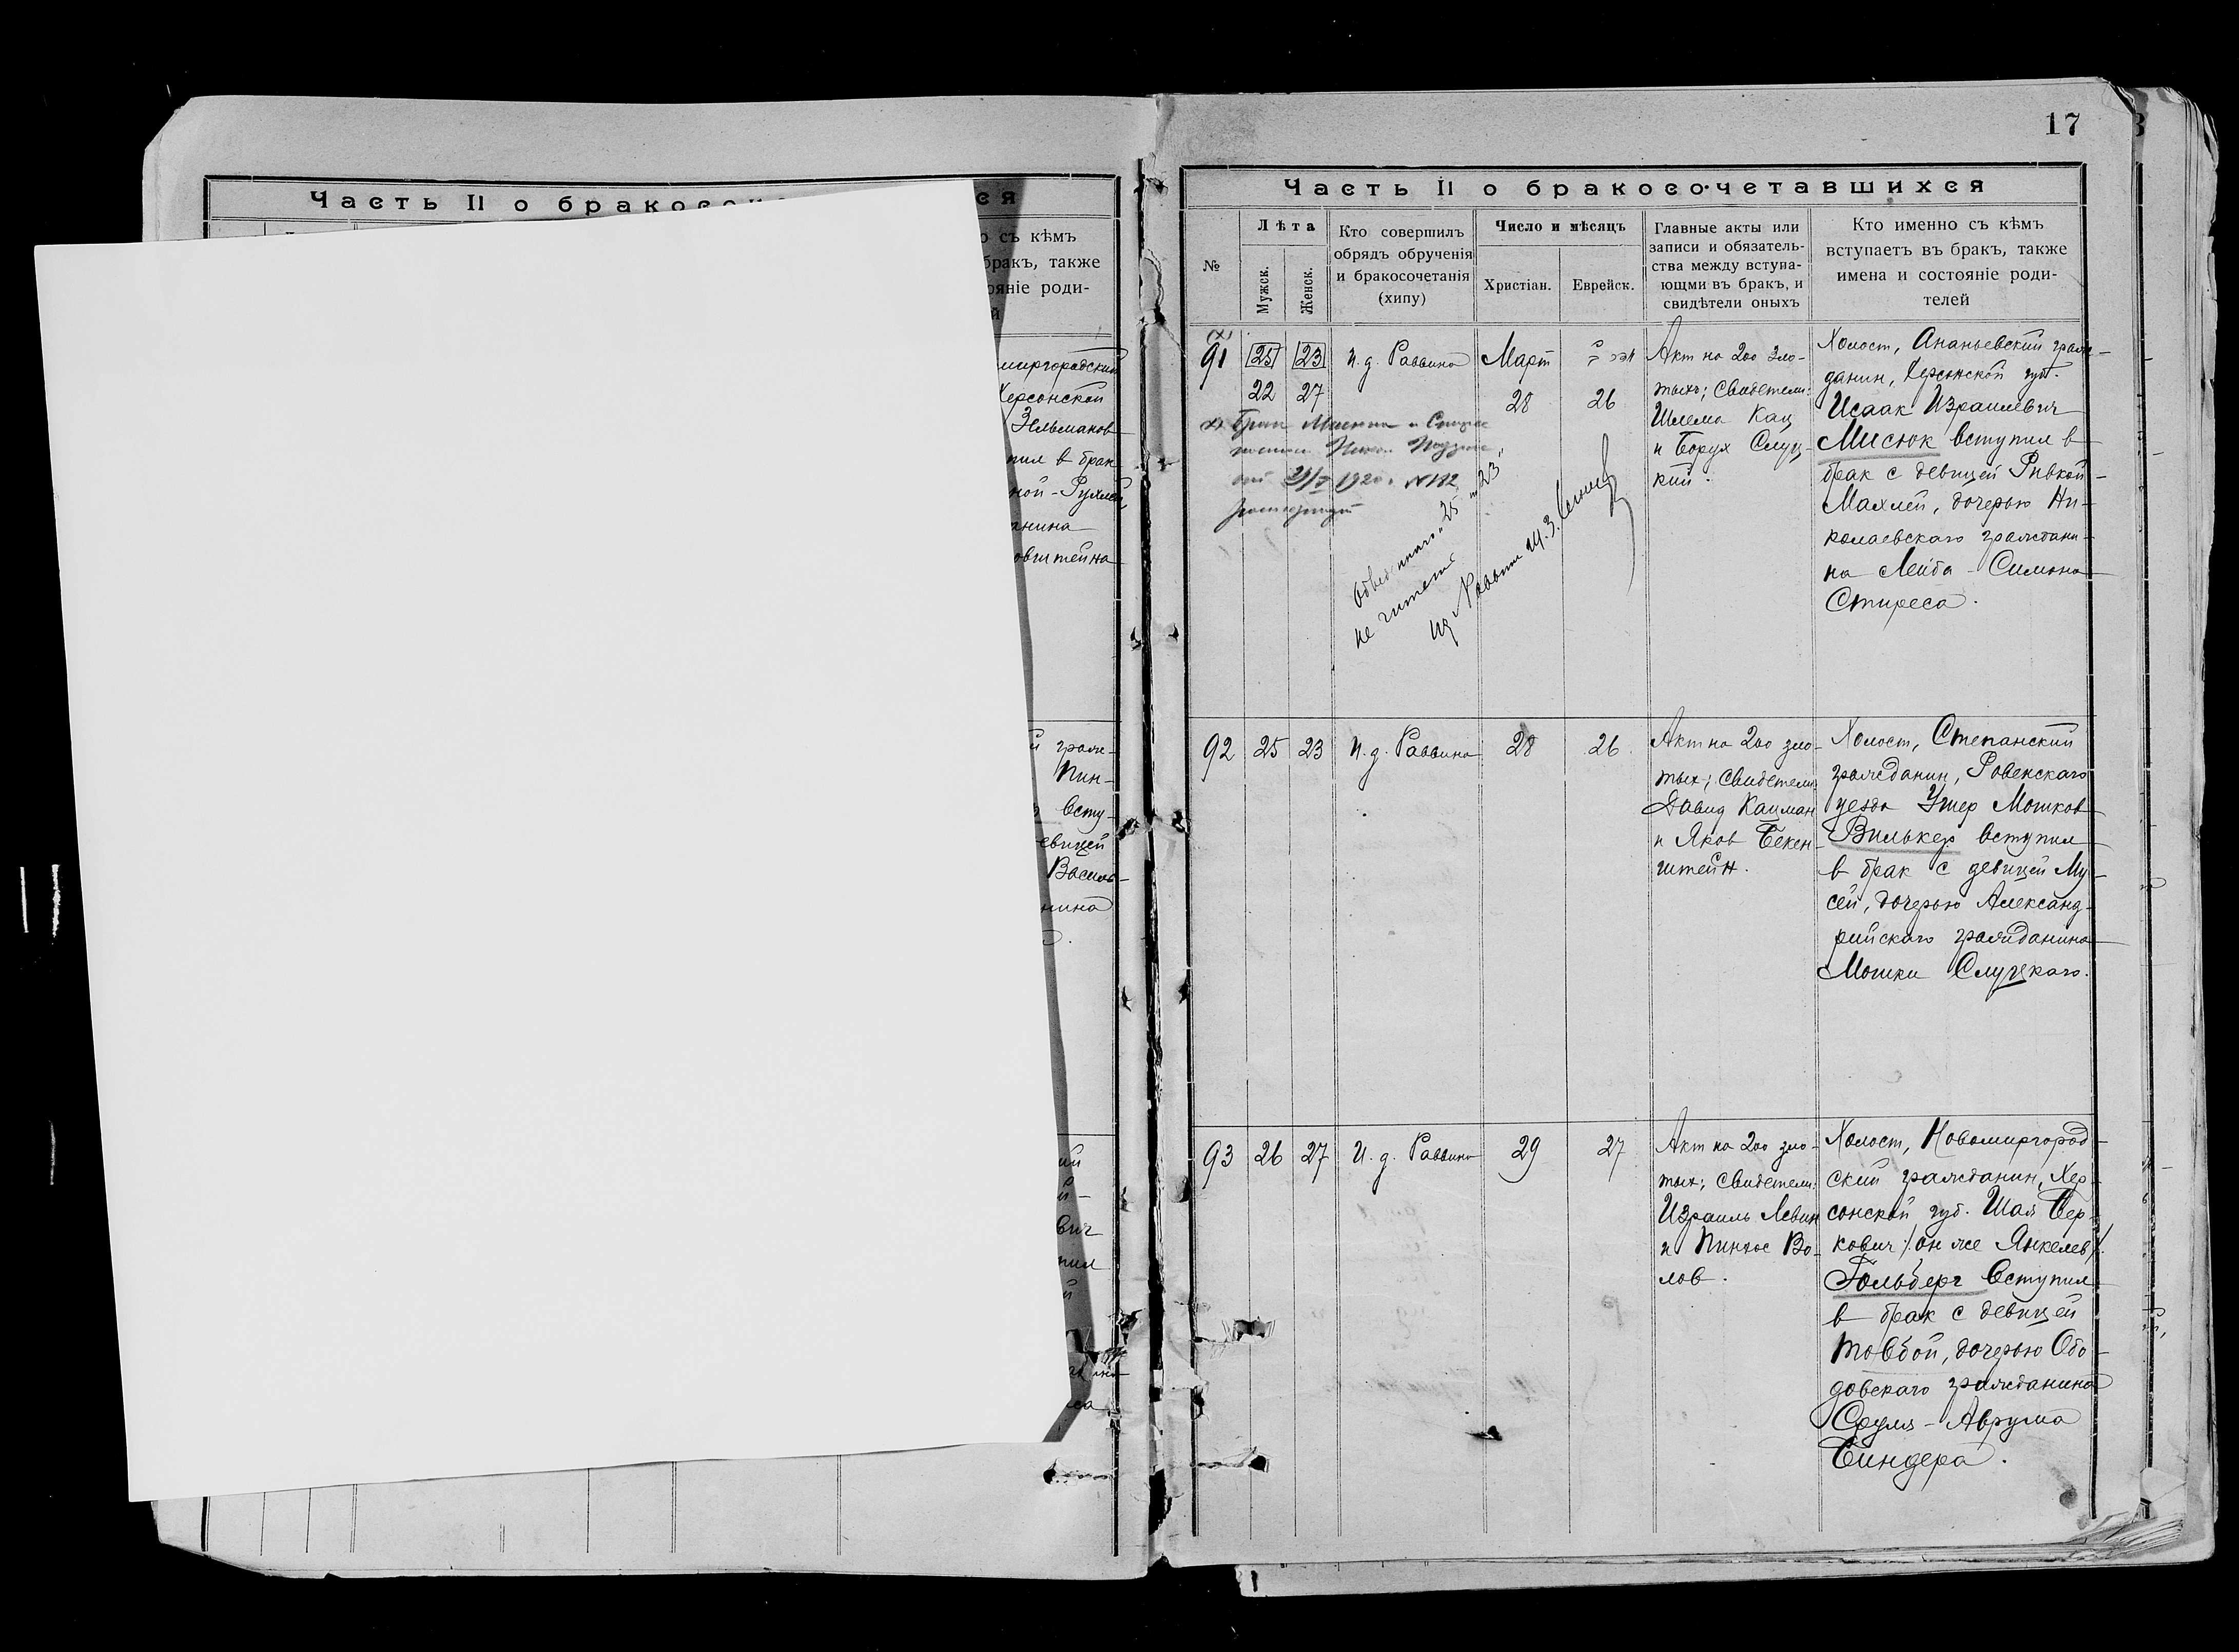 Часть II о бракосо
ся
съ кѣмъ
бракъ, также
ояніе роди-
й
миргородский
Херсонской
Зельманов
пил в брак
ной-Рухлей,
анина
овштейна
граж-
Пин-
всту-
евицей
Василь-
нина
вич
пил
17
Часть II о бракосочетавшихся
№
Лѣта
Мужск.
Женск.
Кто совершилъ
обрядъ обрученія
и бракосочетанія
(хипу)
Число и мѣсяцъ
Христіан.
Еврейск.
Главные акты или
записи и обязатель-
ства между вступа-
ющми въ бракъ, и
свидѣтели оныхъ
Кто именно съ кѣмъ
вступаетъ въ бракъ, также
имена и состояніе роди-
телей
91
25 23
22 27
И. д. Раввина
Март
28
26
х) Брак
1920 г. №
Обведенного "25" и "23"
не читать
И д Раввина
Акт на 200 зло-
тых; Свидетели:
Шлема Кац
и Борух Слуц-
кий.
Холост, Ананьевский граж-
данин, Херсонской губ.
Исаак Израилевич
Мисюк вступил в
брак с девицей Ривкой-
Махлей, дочерью Ни-
колаевскаго граждани-
на Лейба-Симона
Стиреса.
92 25 23
И. д. Раввина
28
26
Акт на 200 зло-
тых; Свидетели
Давид Кацман
и Яков Бекен-
штейн.
Холост, Степанский
гражданин, Ровенскаго
уезда Ушер Мошков
Вилькер вступил
в брак с девицей Му-
сей, дочерью Александ-
рийскаго гражданина
Мошки Слуцкаго.
93 26 27
И. д. Раввина
29
27
Акт на 200 зло-
тых; Свидетели:
Израиль Левин
и Пинхос Во-
лов.
Холост, Новомиргород-
ский гражданин, Хер-
сонской губ. Шая Бер-
кович /:он же Янкелев/:
Гольберг вступил
в брак с девицей
Товбой, дочерью Обо-
довскаго гражданина
Сруля-Аврума
Биндера.